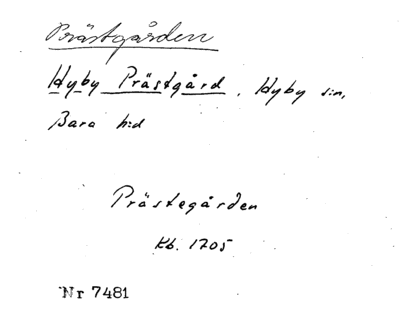 Prästgården
Hyby Prästgård. Hyby s:n,
Bara h:d
Prästegården
Kb. 1705
Nr 7481